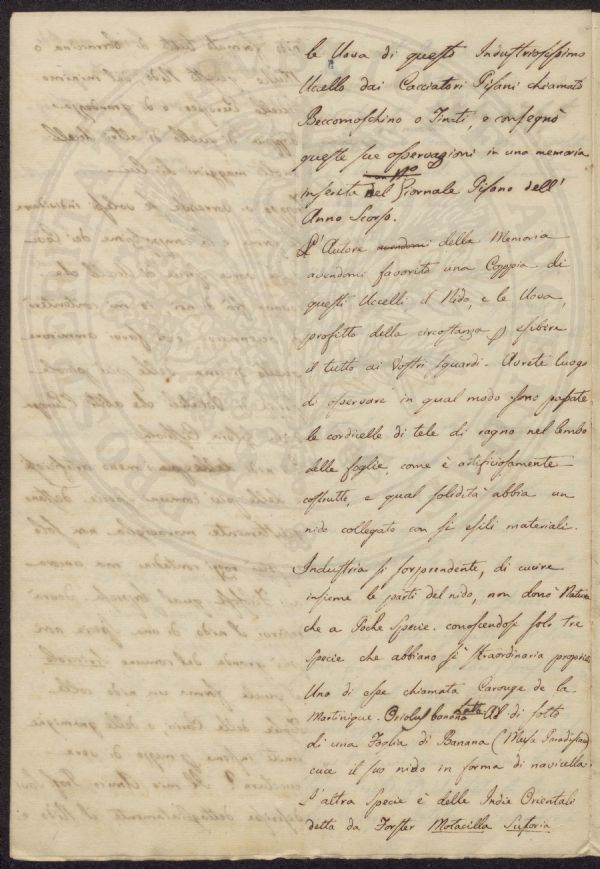 le Uova di questo Industriosissimo
Ucello dai Cacciatori Pisani chiamato
Beccamoschino o Tinti, e consegnò
queste sue osservazioni in una memoria
inserita nel Giornale Pisano dell'
Anno Scorso.
L'Autore avendomi della Memoria
avendomi favorito una Coppia di
questi Ucelli il Nido, e le Uova,
profitto della circostanza p esibire
il tutto ai Vostri sguardi. Avrete luogo
di osservare in qual modo sono passate
le cordicelle di tele di ragno nel lembo
delle foglie, come è artificiosamente
costrutto, e qual solidità abbia un
nido collegato con sì esili materiali.
Industria sì sorprendente, di cucire
insieme le parti del nido, non donò Natura
che a Poche specie. conoscendosi solo tre
specie che abbiano sì straordinaria proprietà
Una di esse chiamata Carouge de la
Martinique. Oriolus banana di sotto
di una Foglia di Banana (Musa Paradisiaca)
cuce il suo nido in forma di navicella.
L'altra specie è delle Indie Orientali
detta da Forster Motacilla Sutoria